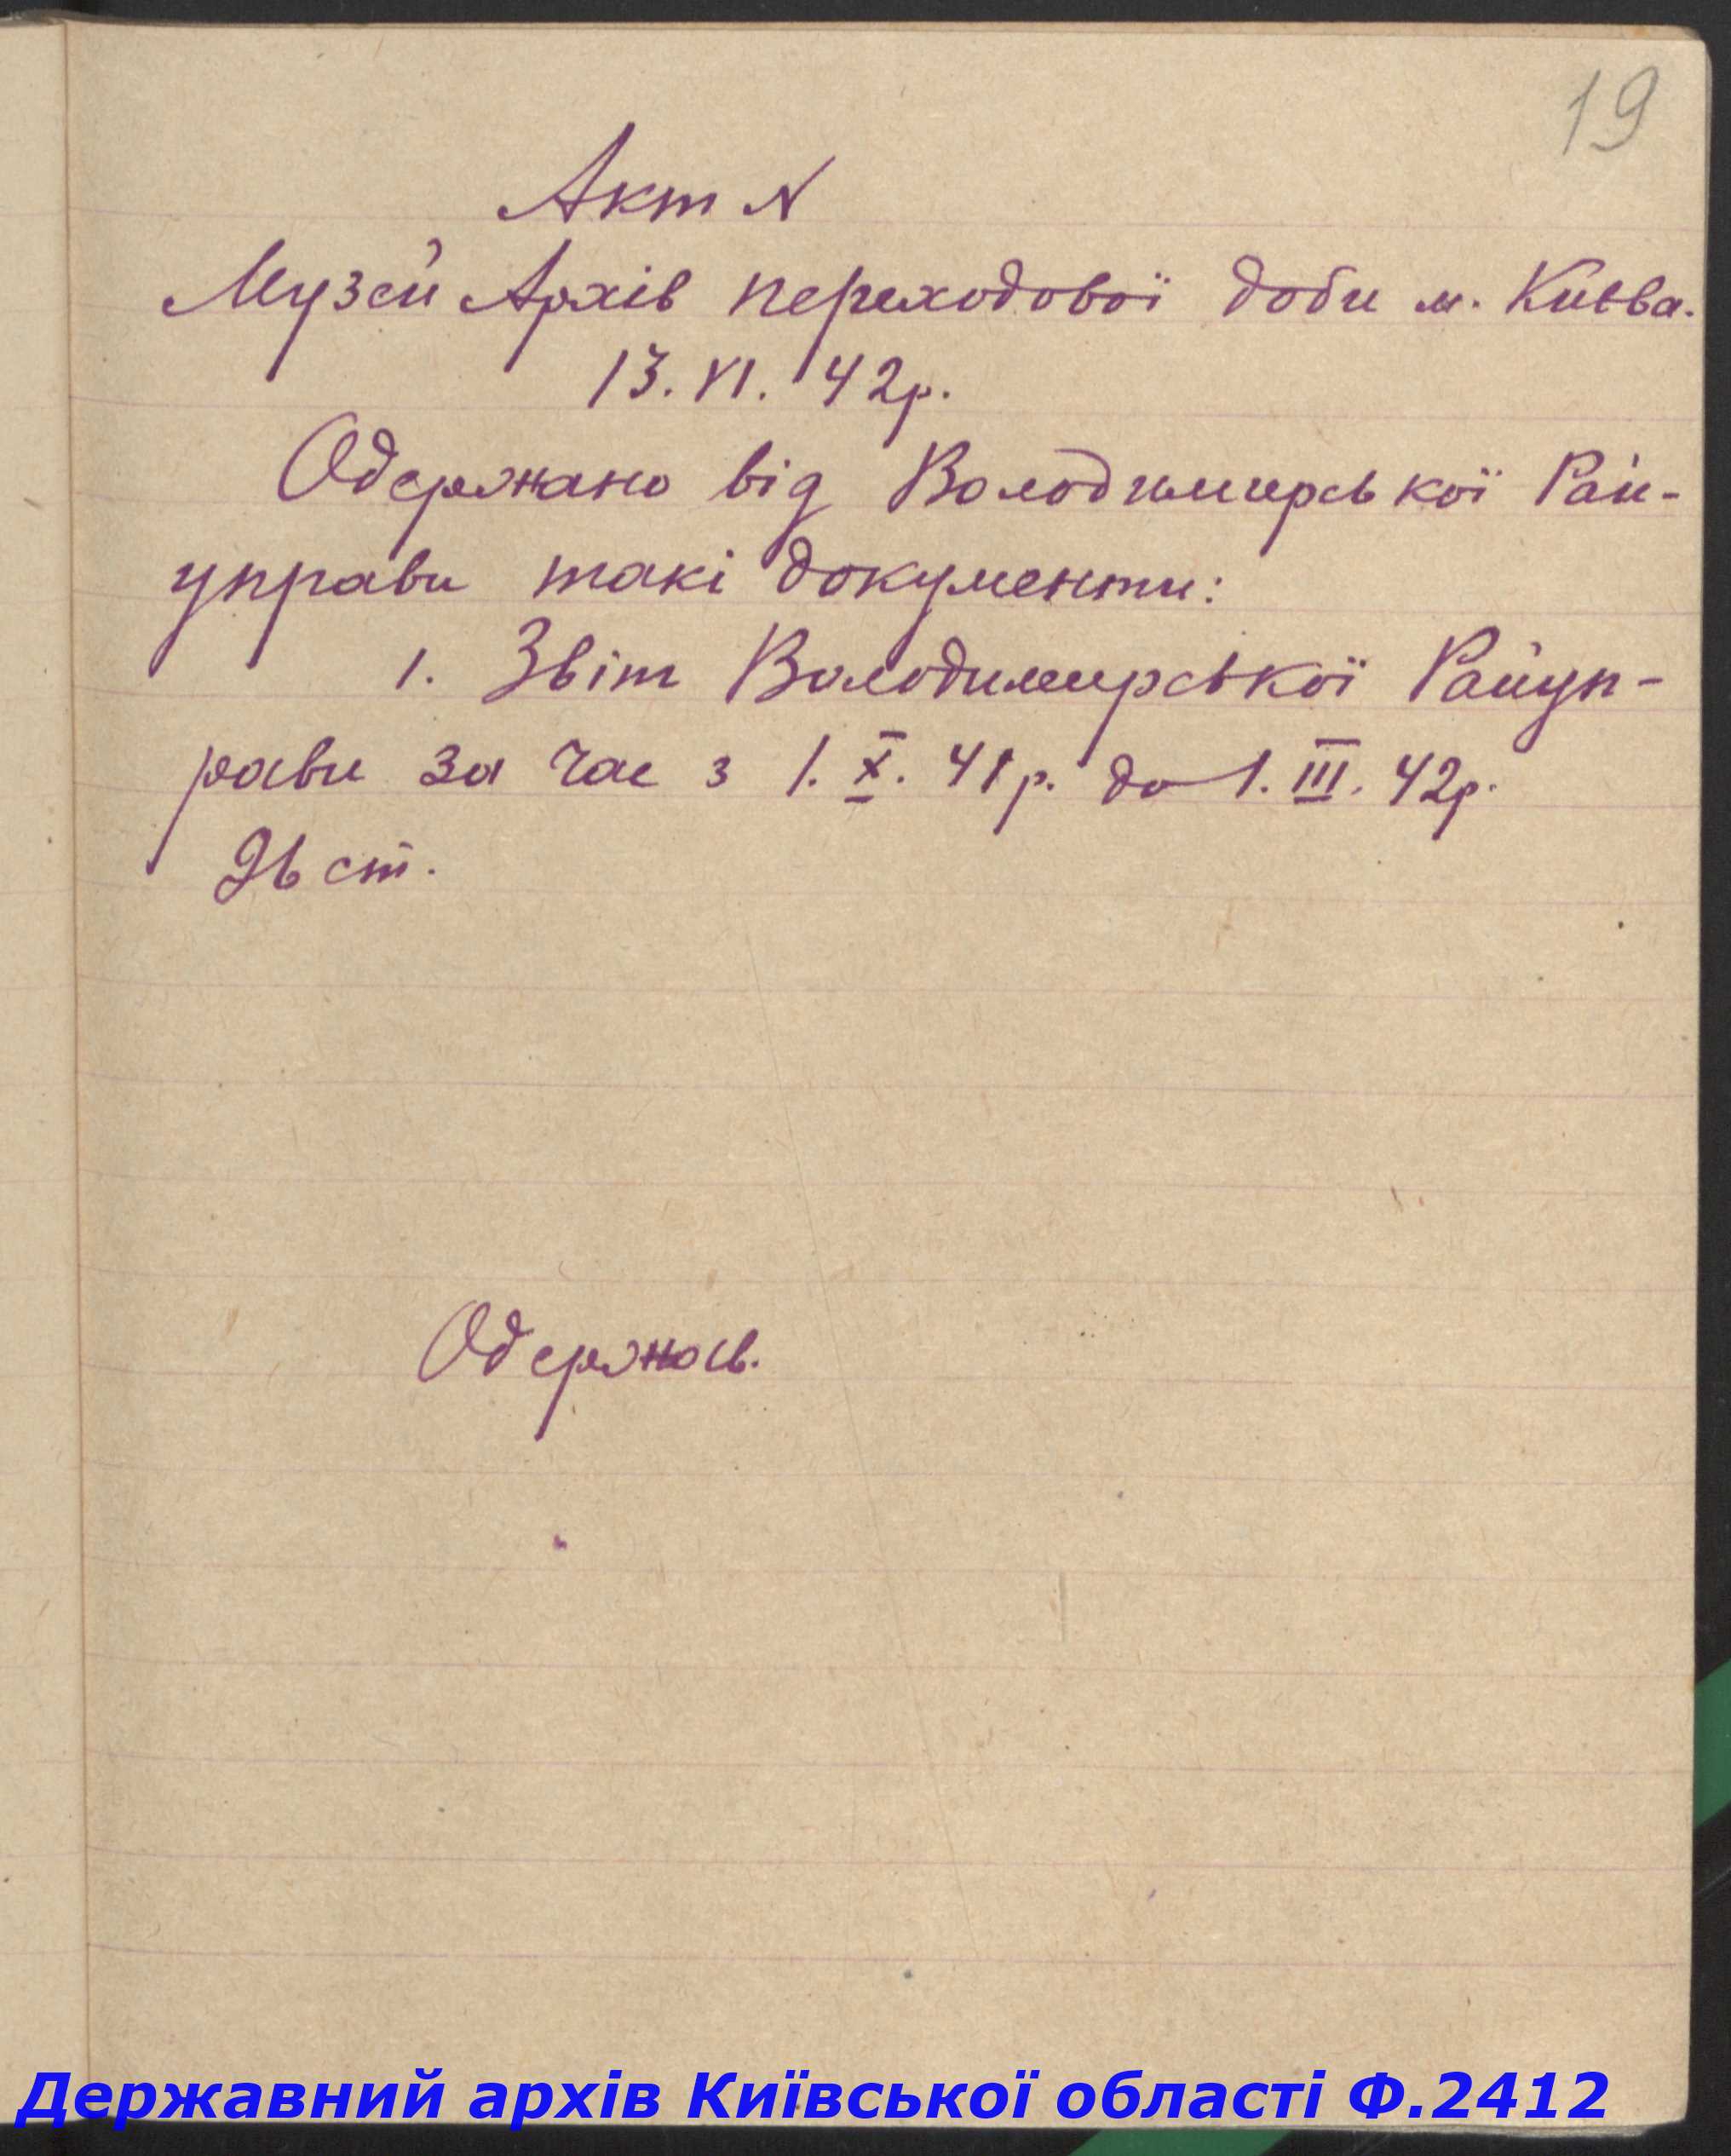 19
Акт N
Музей Архів переходової доби м. Києва.
13. VI. 42р.
Одержано від Володимирської Рай-
управи такі документи:
1. Звіт Володимирської Райуп-
рави за час з 1. X. 41р. до 1. III. 42р.
26 ст.
Одержав.
Державний архів Київської області Ф.2412